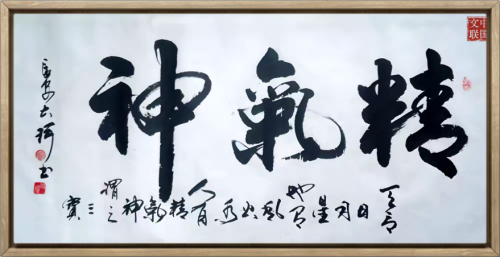 精氣神
天有日月星地有風火水人有精氣神謂之三寶
中国
文联